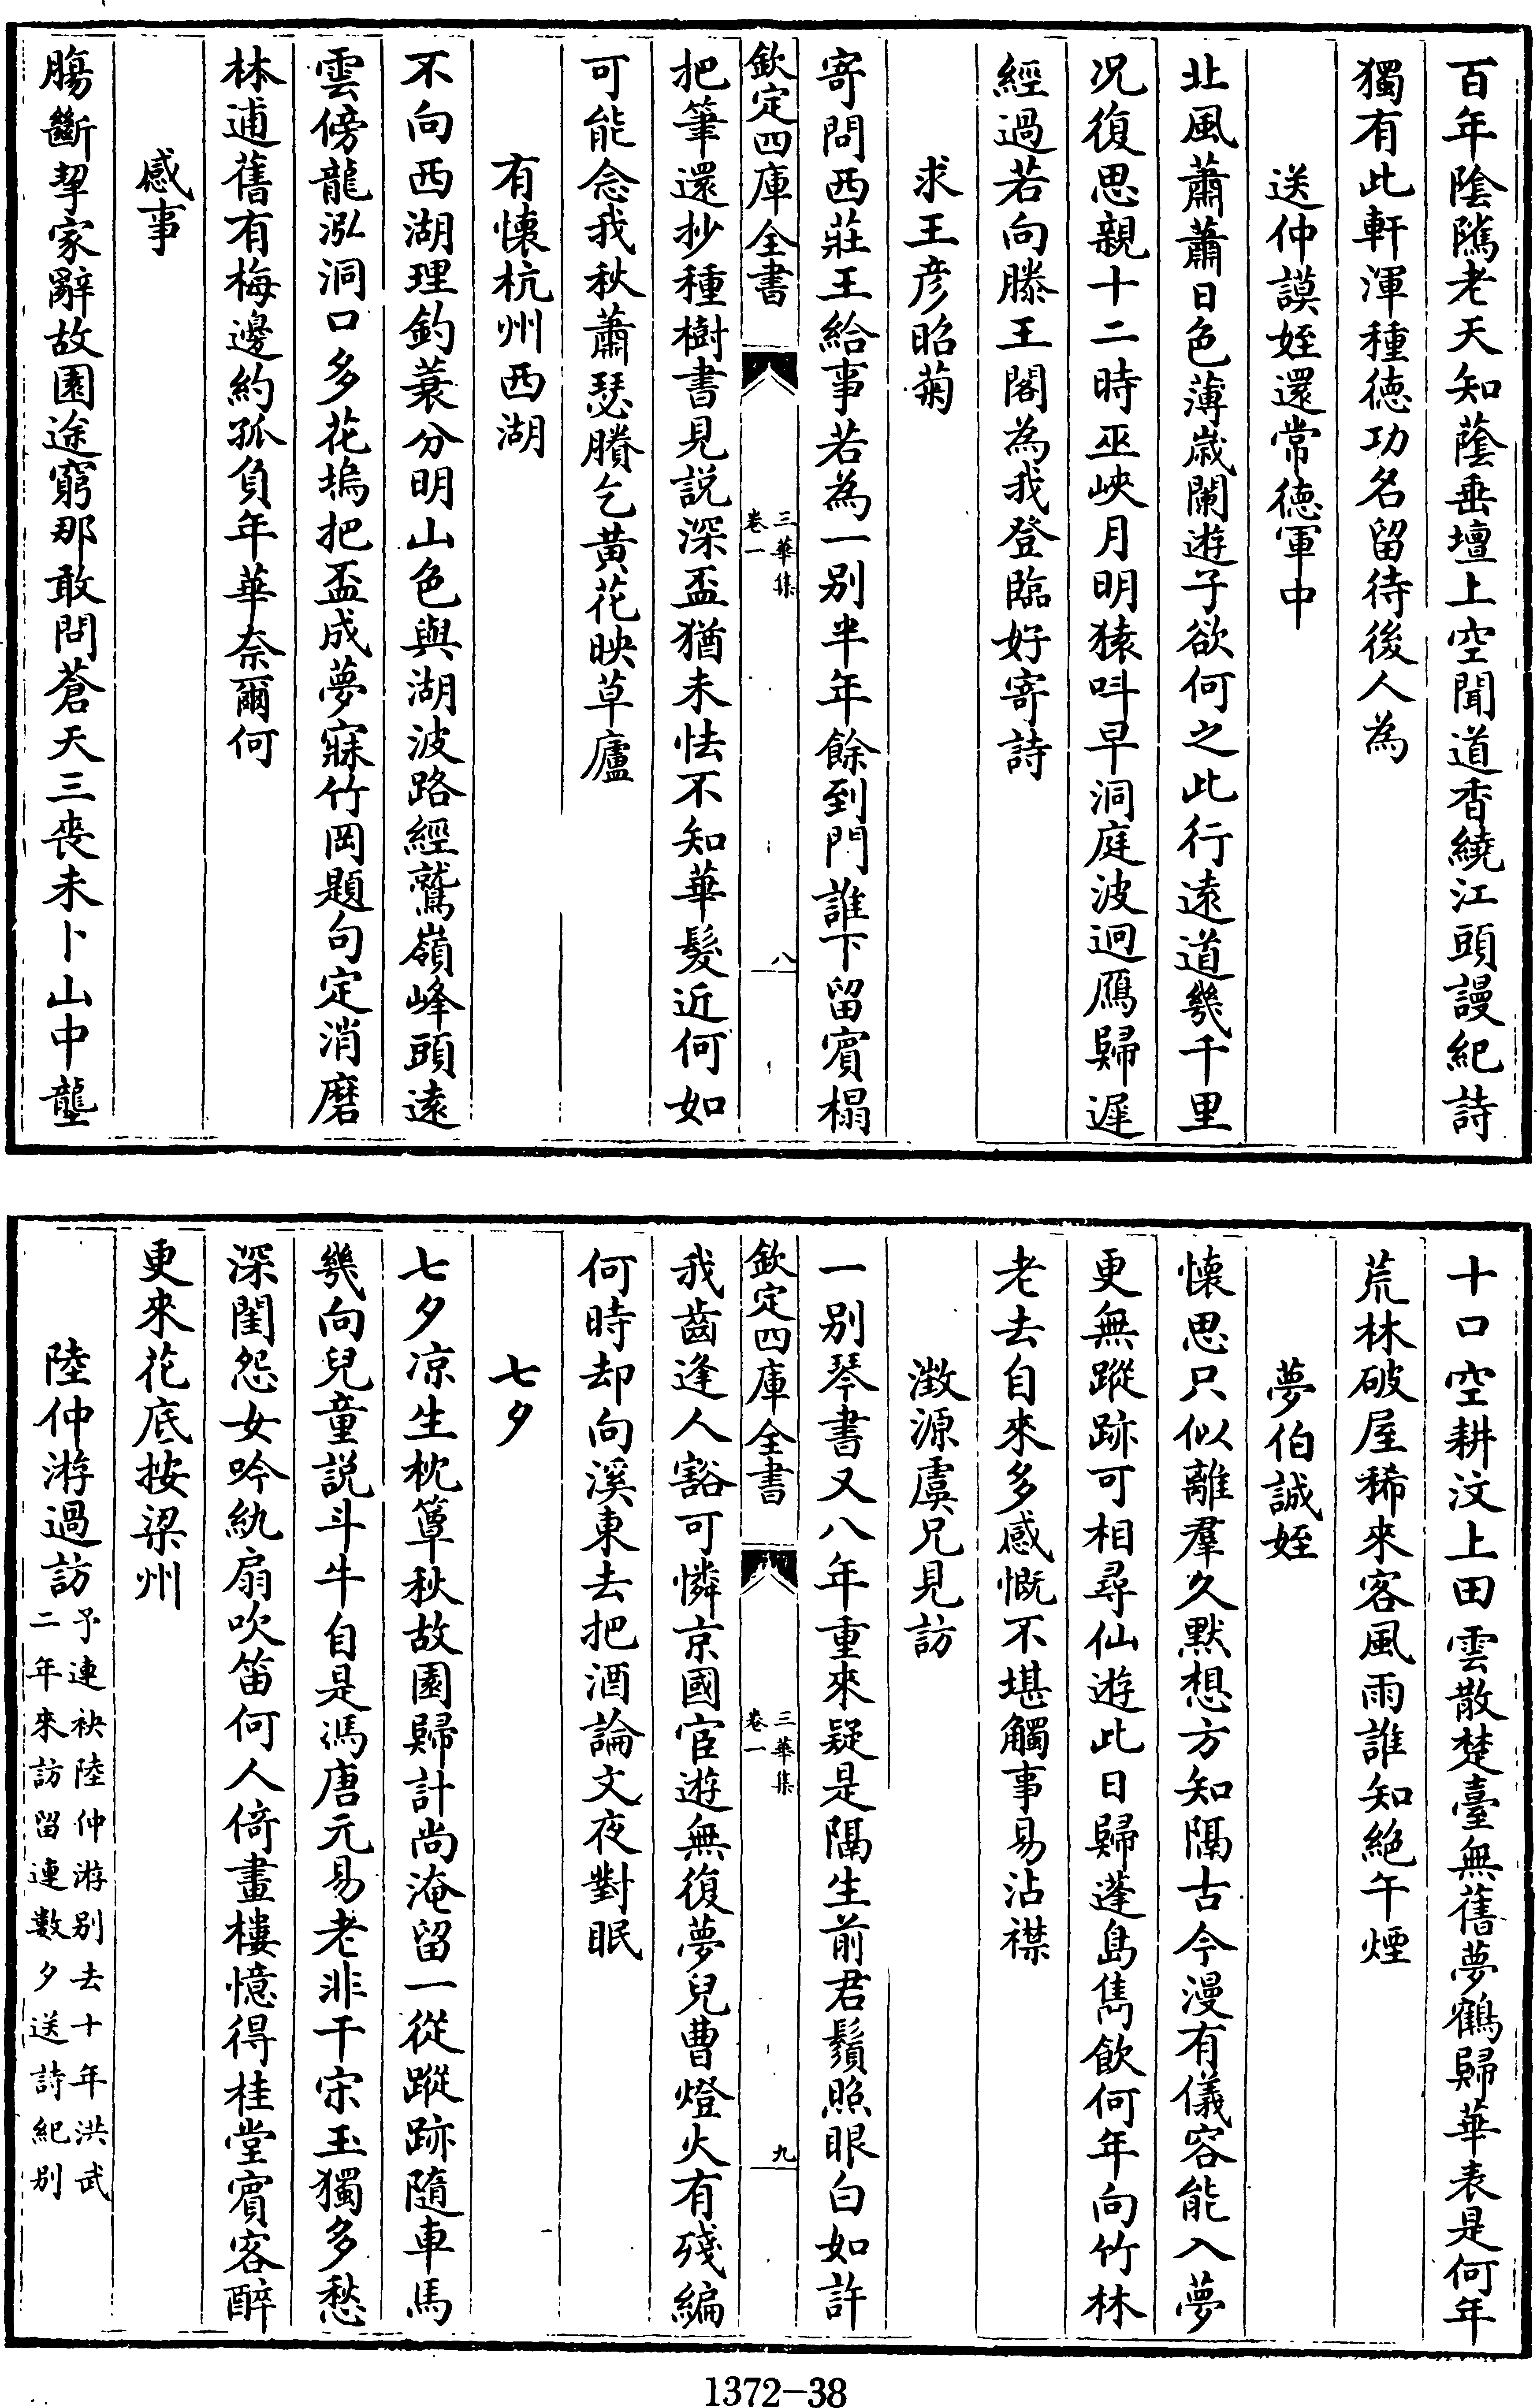 百年陰隲老天知蔭垂壇上空聞道香繞江頭謾紀詩
獨有此軒渾種德功名留待後人為
送仲謨姪還常德軍中
北風蕭蕭日色薄歲闌遊子欲何之此行遠道幾千里
况復思親十二時巫峽月明猿呌早洞庭波迥鴈歸遲
經過若向滕王閣為我登臨好寄詩
求王彦昭菊
寄問西莊王給事若為一別半年餘到門誰下留賓榻
欽定四庫全書
三華集
卷一
八
把筆還抄種樹書見説深盃猶未怯不知華髮近何如
可能念我秋蕭瑟賸乞黄花映草廬
有懷杭州西湖
不向西湖理釣蓑分明山色與湖波路經鷲嶺峰頭遠
雲傍龍泓洞口多花塢把盃成夢寐竹岡題句定消磨
林逋舊有梅邊約孤負年華奈爾何
感事
腸斷挈家辭故園途窮那敢問蒼天三喪未卜山中壟
十口空耕汶上田雲散楚臺無舊夢鶴歸華表是何年
荒林破屋稀來客風雨誰知絶午煙
夢伯誠姪
懷思只似離羣久默想方知隔古今漫有儀容能入夢
更無蹤跡可相尋仙遊此日歸蓬島雋飲何年向竹林
老去自來多感慨不堪觸事易沾襟
澂源虞兄見訪
一別琴書又八年重來疑是隔生前君鬚照眼白如許
欽定四庫全書
三華集
卷一
九
我齒逢人豁可憐京國宦遊無復夢兒曹燈火有殘編
何時却向溪東去把酒論文夜對眠
七夕
七夕凉生枕簟秋故園歸計尚淹留一從蹤跡隨車馬
幾向兒童説斗牛自是馮唐元易老非干宋玉獨多愁
深閨怨女吟紈扇吹笛何人倚畫樓憶得桂堂賓客醉
更來花底按梁州
陸仲游過訪
予連袂陸仲游別去十年洪武
二年來訪留連數夕送詩紀別
1372-38